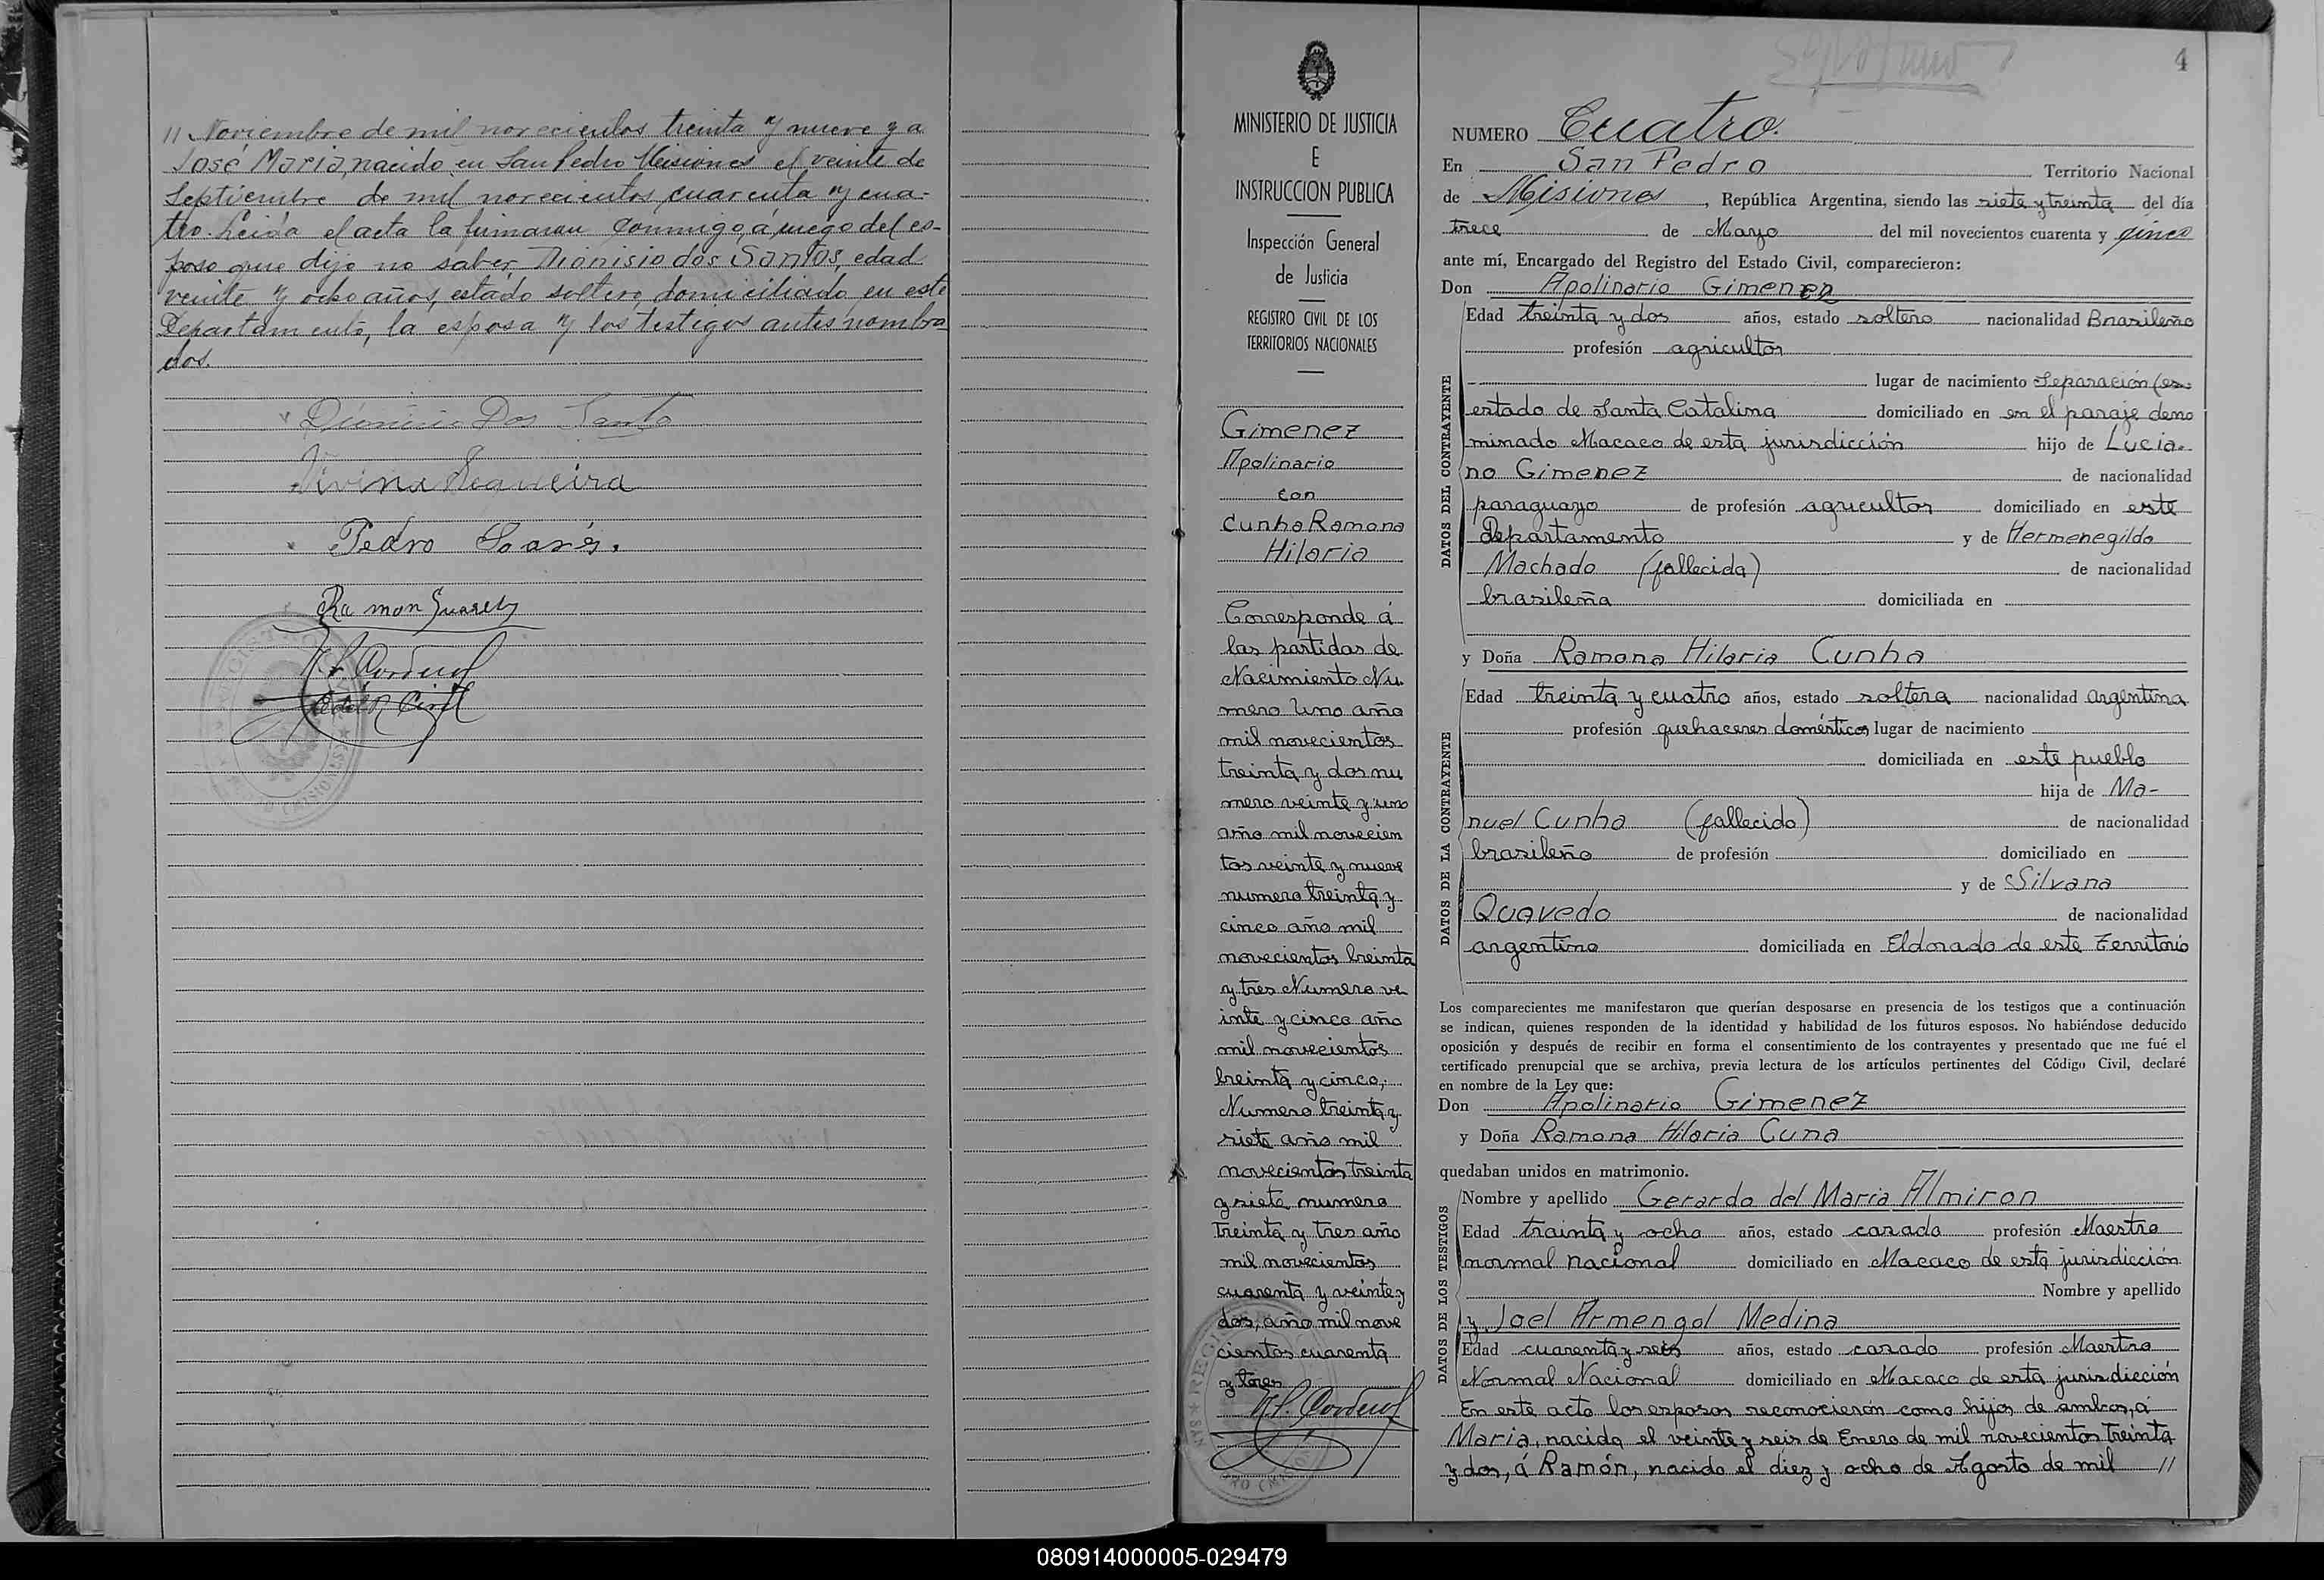 11 Noviembre de mil novecientos treinta y nueve y a
José Maria, nacido en San Pedro Misiones el veinte de
Septiembre de mil novecientos cuarenta y cua-
tro. Leida el acta la firmaron conmigo, á ruego del es-
poso que dijo no saber, Dionisio dos Santos, edad
veinte y ocho años, estado soltero, domiciliado en este
Departamento, la esposa y los testigos antes nombra
dos.
Dionicio Dos Santo
Pedro Soarés.
Ramon Suarez
4
MINISTERIO DE JUSTICIA
E
INSTRUCCION PUBLICA
Inspección General
de Justicia
REGISTRO CIVIL DE LOS
TERRITORIOS NACIONALES
Gimenez
Apolinario
con
Cunha Ramona
Hilaria
Corresponde á
las partidas de
Nacimiento Nu
mero Uno año
mil novecientos
treinta y dos nu
mero veinte y uno
año mil novecien
tos veinte y nueve
numero treinta y
cinco año mil
novecientos treinta
y tres Numero ve
inte y cinco año
mil novecientos
treinta y cinco,
Numero treinta y
siete año mil
novecientos treinta
y siete numero
treinta y tres año
mil novecientos
cuarenta y veinte y
dos, año mil nove
cientos cuarenta
y tres
NUMERO Cuatro.
En San Pedro Territorio Nacional
de Misiones, República Argentina, siendo las siete y treinta del día
trece de Mayo del mil novecientos cuarenta y cinco
ante mí, Encargado del Registro del Estado Civil, comparecieron:
Don Apolinario Gimenez
DATOS DEL CONTRAYENTE
Edad treinta y dos años, estado soltero nacionalidad Brasileño
profesión agricultor
lugar de nacimiento Separación (en
estado de Santa Catalina domiciliado en en el paraje deno
minado Macaco de esta jurisdicción hijo de Lucia-
no Gimenez de nacionalidad
paraguayo de profesión agricultor domiciliado en este
departamento y de Hermenegilda
Machado (fallecida) de nacionalidad
brasileña domiciliada en
y Doña Ramona Hilaria Cunha
DATOS DE LA CONTRAYENTE
Edad treinta y cuatro años, estado soltera nacionalidad argentina
profesión quehaceres domésticos lugar de nacimiento
domiciliada en este pueblo
hija de Ma-
nuel Cunha (fallecido) de nacionalidad
brasileño de profesión domiciliado en
y de Silvana
Quavedo de nacionalidad
argentina domiciliada en Eldorado de este Territorio
Los comparecientes me manifestaron que querían desposarse en presencia de los testigos que a continuación
se indican, quienes responden de la identidad y habilidad de los futuros esposos. No habiéndose deducido
oposición y después de recibir en forma el consentimiento de los contrayentes y presentado que me fué el
certificado prenupcial que se archiva, previa lectura de los artículos pertinentes del Código Civil, declaré
en nombre de la Ley que:
Don Apolinario Gimenez
y Doña Ramona Hilaria Cuna
quedaban unidos en matrimonio.
DATOS DE LOS TESTIGOS
Nombre y apellido Gerardo del Maria Almiron
Edad trainta y ocho años, estado casado profesión Maestro
normal nacional domiciliado en Macaco de esta jurisdicción
Nombre y apellido
y Joel Armengol Medina
Edad cuarenta y seis años, estado casado profesión Maestro
Normal Nacional domiciliado en Macaco de esta jurisdicción
En este acto los esposos reconocieron como hijos de ambos, á
Maria, nacida el veinte y seis de Enero de mil novecientos treinta
y dos, á Ramón, nacido el diez y ocho de Agosto de mil 11
080914000005-029479